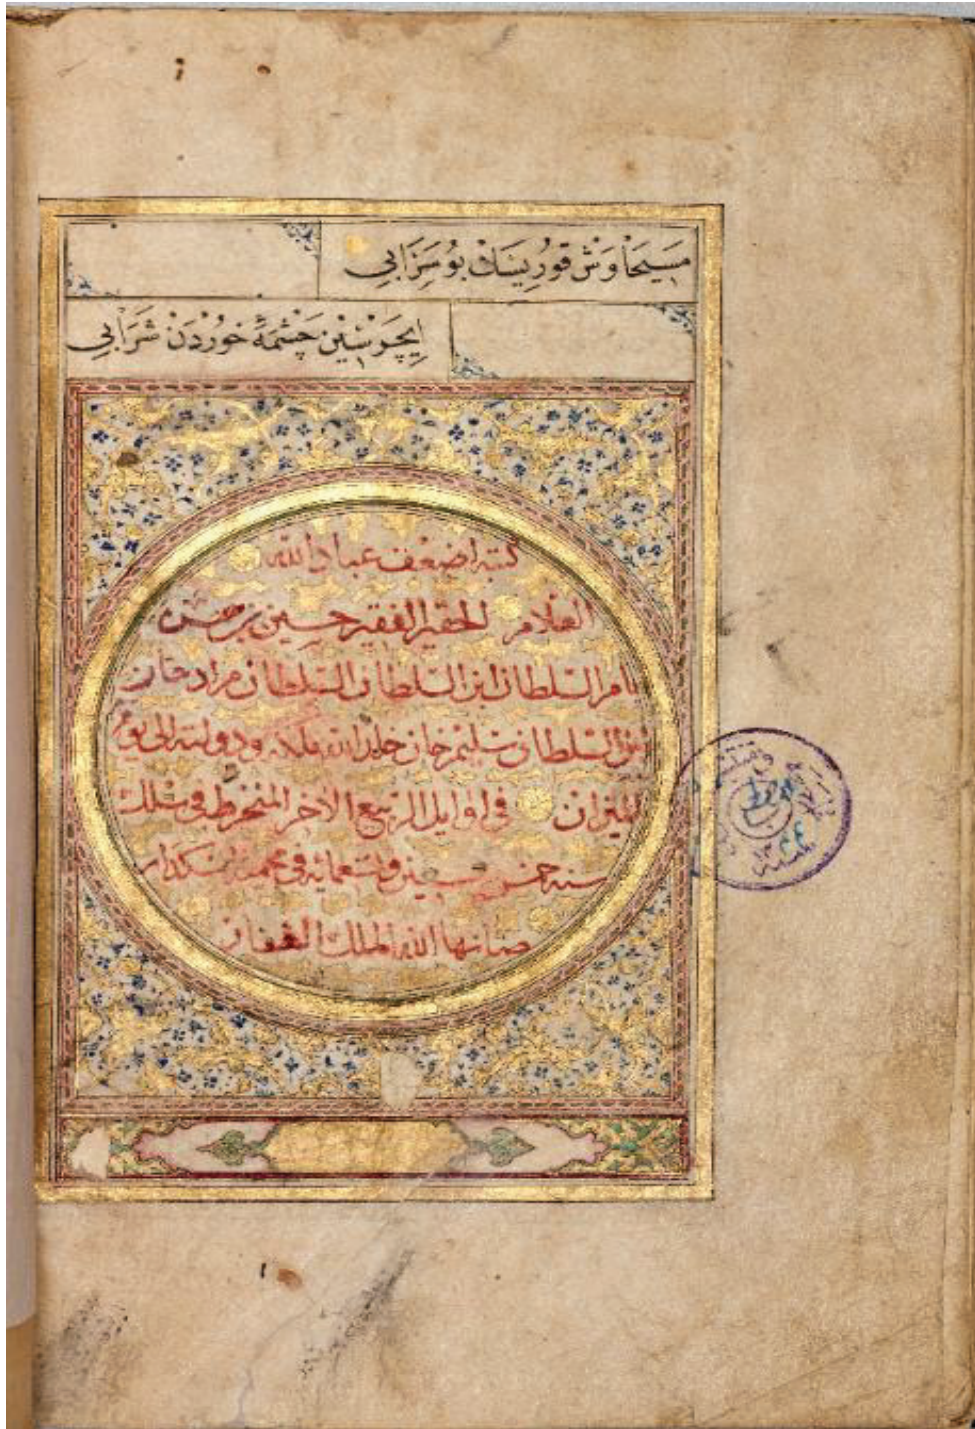 مَسِيحَاوَشْ قُورِيسَكْ بُو سَرَابِي
اِيچَرْسِنْ چَشْمَهٔ خُورْدَنْ شَرَابِي
كتبه اضعف عباد الله
العلام الحقير الفقير حسين بن حسن
بامر السلطان ابن السلطان السلطان مراد خان
ابن السلطان سليم خان خلد الله ملكه ودولته الى يوم
الميزان في اوايل الربيع الاخر المنخرط في سلك
سنه خمس وتسعمائة في محمية اسكدار
صانها الله الملك الغفار